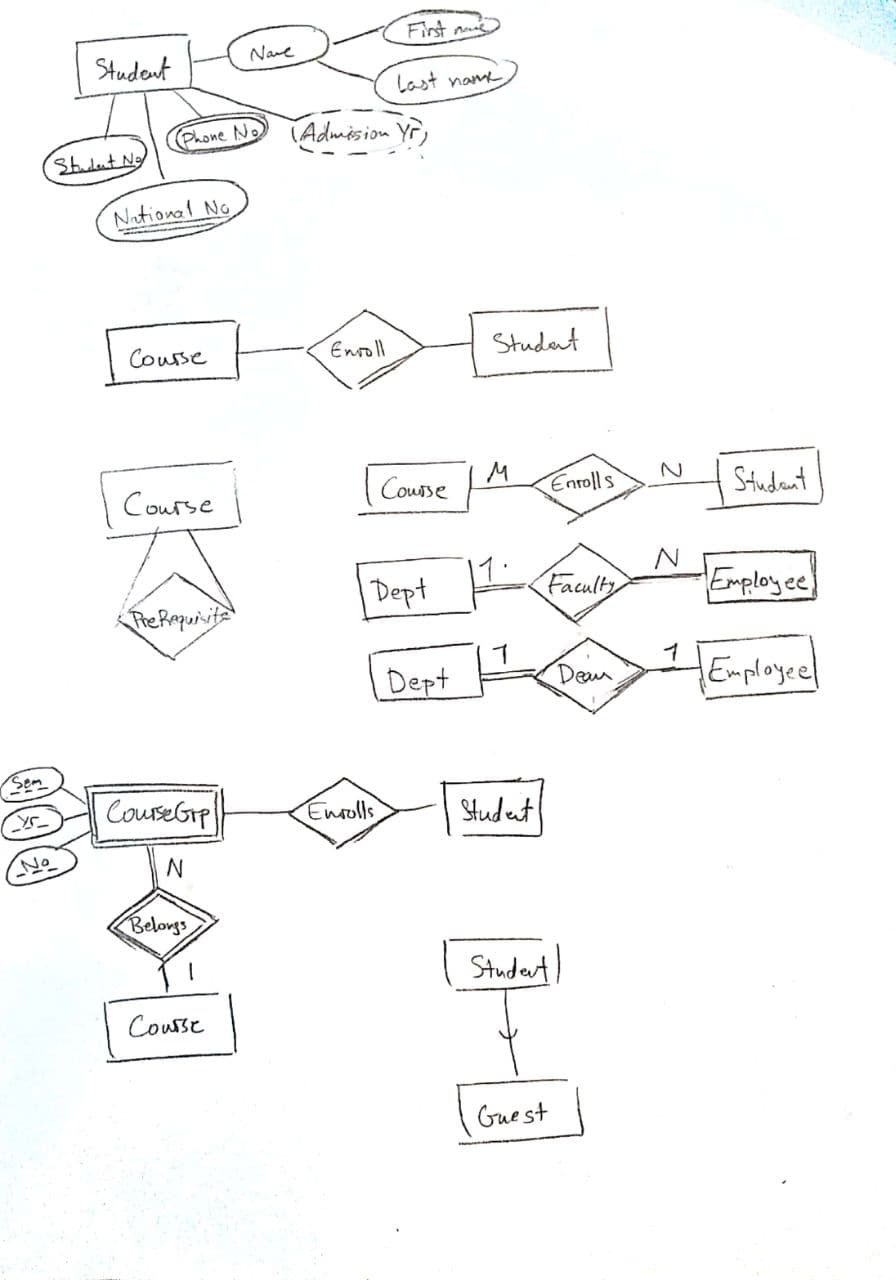 Student
Name
First name
Last name
Student No
Phone No
Admision Yr
National No
Course
Enroll
Student
Course
PreRequisite
Course
M
Enrolls
N
Student
Dept
1
Faculty
N
Employee
Dept
1
Dean
1
Employee
Sem
Yr
No
CourseGrp
Enrolls
Student
N
Belongs
1
Course
Student
Guest